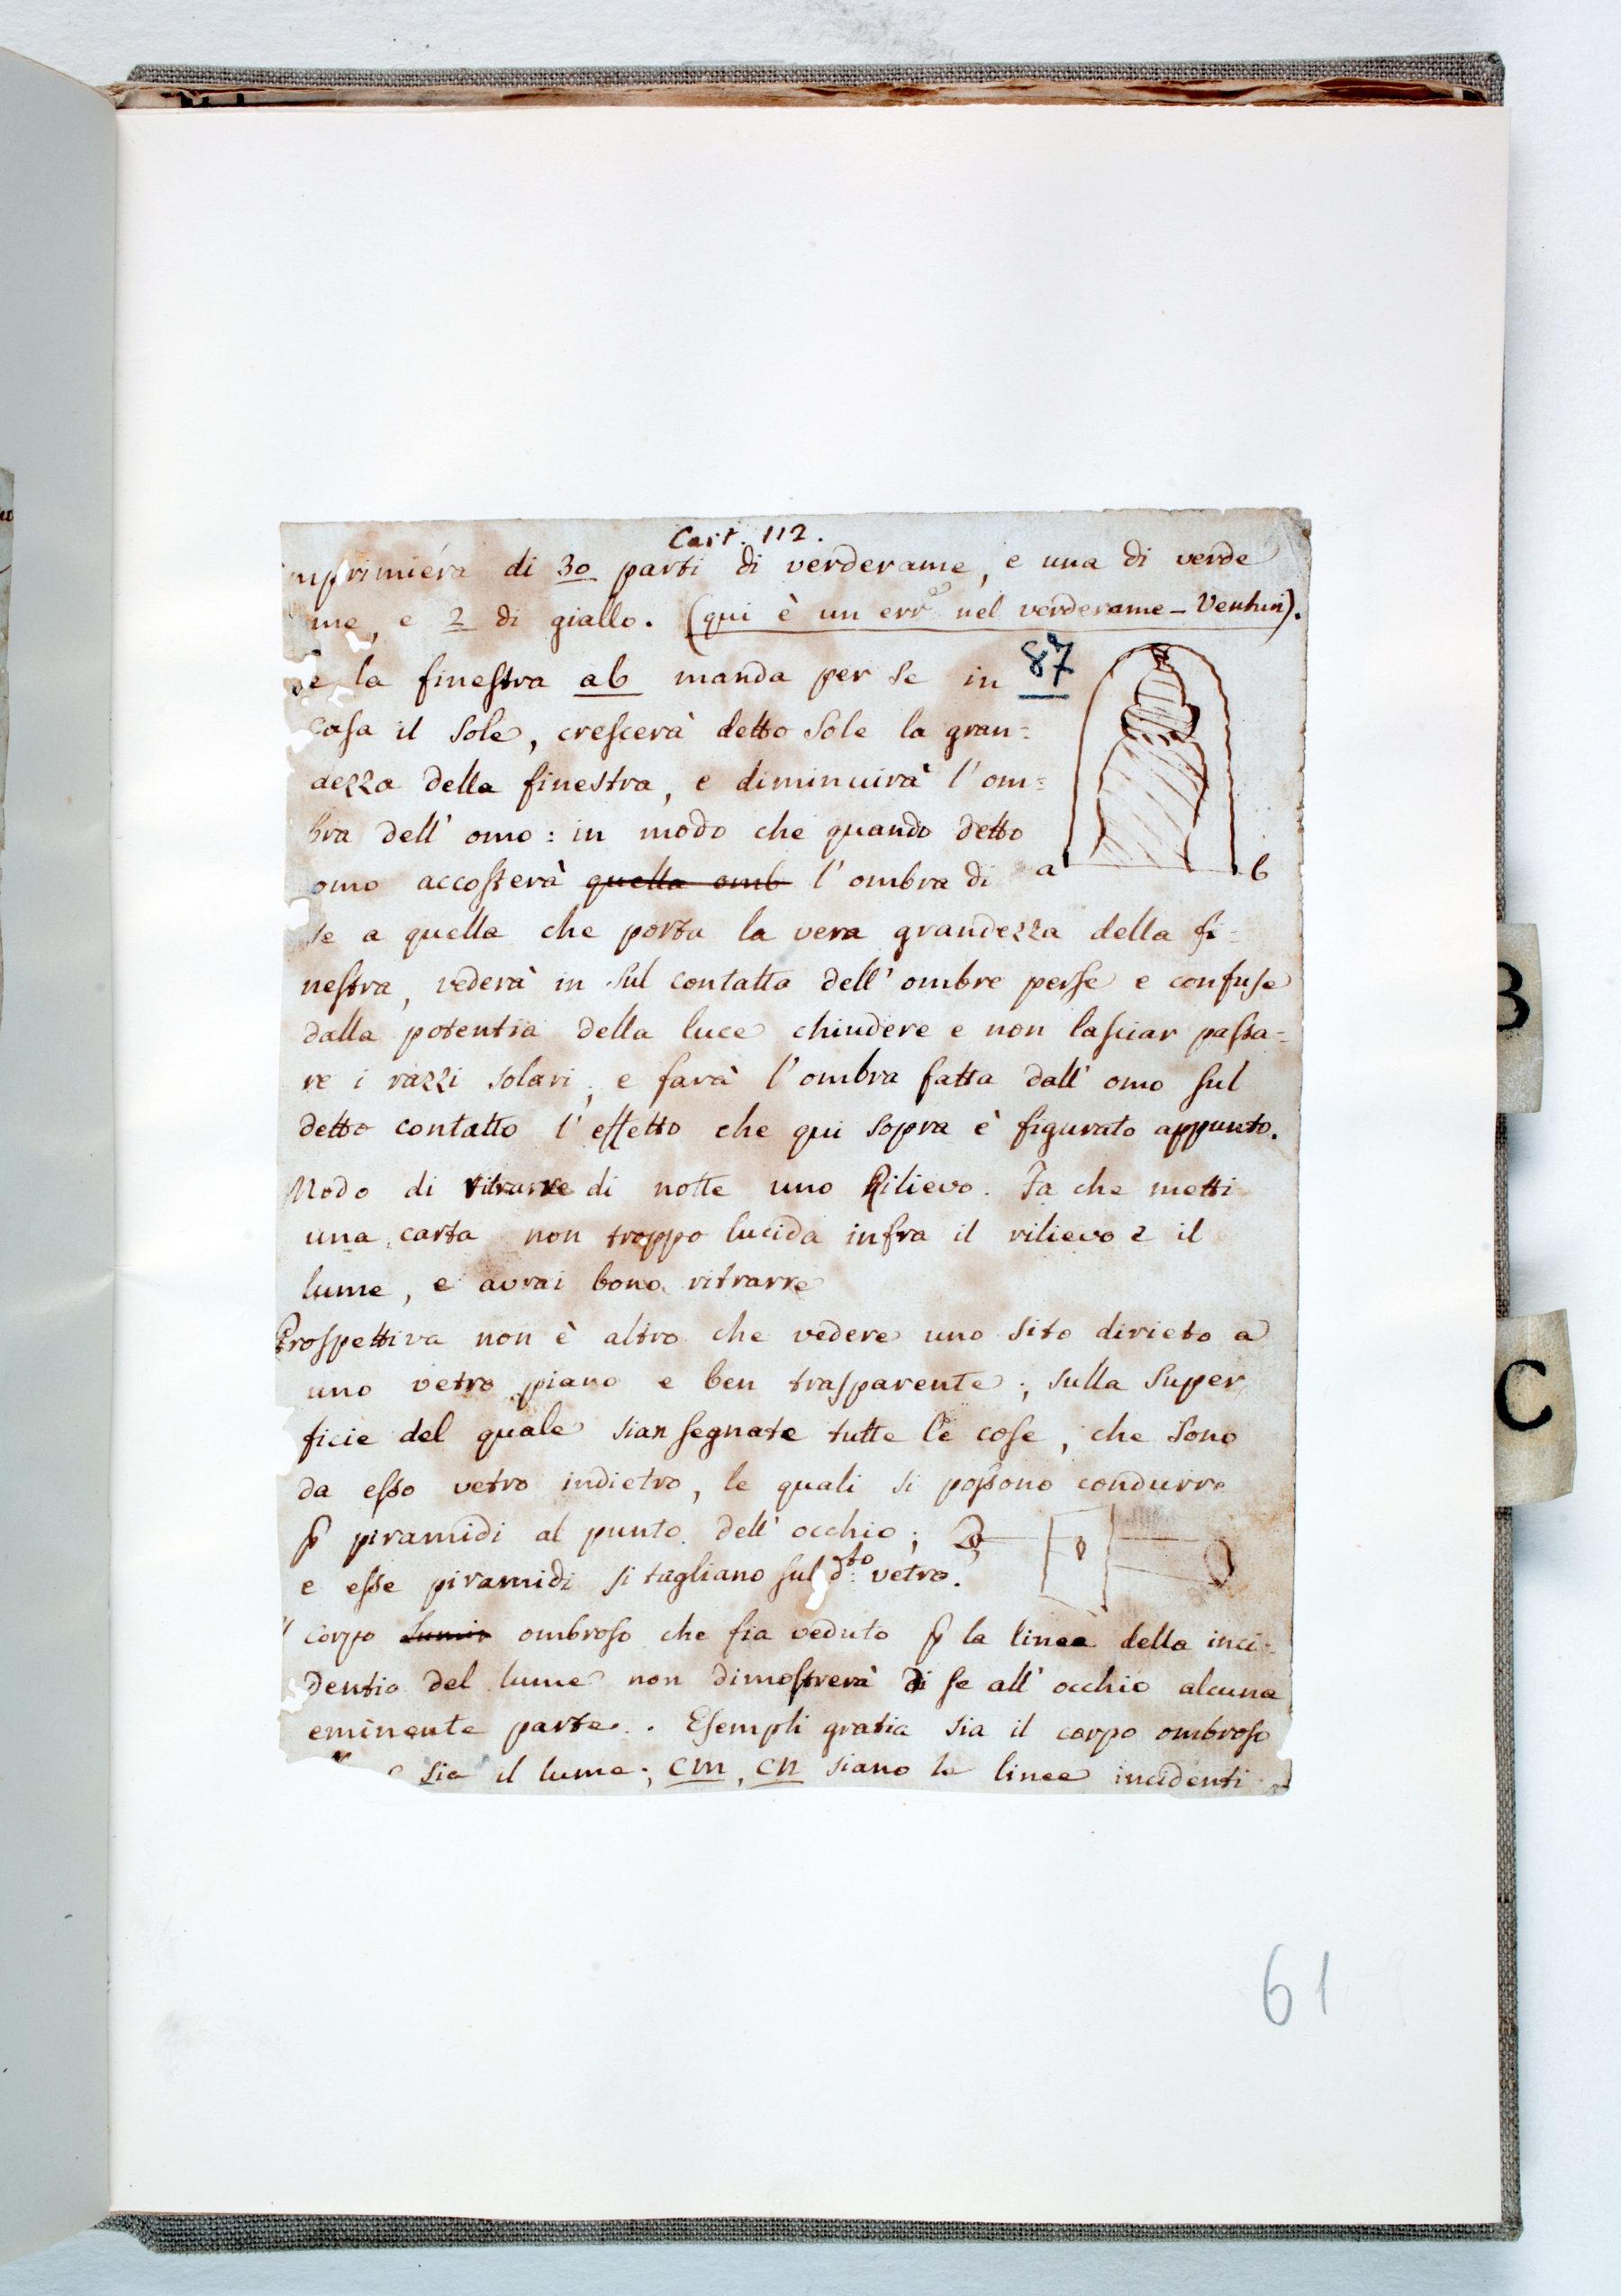 Cart. 112.
imprimiera di 30 parti di verderame, e una di verde
me, e 2 di giallo. (qui è un err.e nel verderame – Venturi).
87
Se la finestra ab manda per se in
casa il sole, crescerà detto sole la gran=
dezza della finestra, e diminuirà l'om=
bra dell' omo: in modo che quando detto
omo accosterà quella omb l'ombra di
a b
se a quella che porta la vera grandezza della fi=
nestra, vederà in sul contatto dell' ombre perse e confuse
dalla potentia della luce chiudere e non lasciar passa=
re i razzi solari; e farà l'ombra fatta dall' omo sul
detto contatto l'effetto che qui sopra è figurato appunto.
Modo di ritrarre di notte uno Rilievo. Fa che metti
una carta non troppo lucida infra il rilievo e il
lume, e avrai bono ritrarre
Prospettiva non è altro che vedere uno sito dirieto a
uno vetro piano e ben trasparente; sulla super
ficie del quale sian segnate tutte le cose, che sono
da esso vetro indietro, le quali si possono condurre
p piramidi al punto dell' occhio;
e esse piramidi si tagliano sul d.to vetro.
Il corpo lumin ombroso che fia veduto p la linea della inci=
dentia del lume non dimostrerà di se all' occhio alcuna
eminente parte. Esempli gratia sia il corpo ombroso
sia il lume; cm, cn siano le linee incidenti
B
C
61